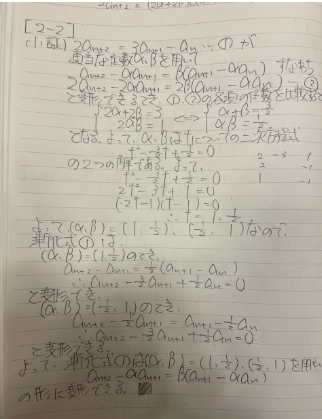 [2-2]
(1)(証) 2an+2 = 3an+1 - an … ① が
適当な定数α,βを用いて
an+2 - αan+1 = β(an+1 - αan) すなわち
2an+2 - 2αan+1 = 2β(an+1 - αan) … ②
と変形できるとき、①,②の各項の係数を比較すると
{2α+2β=3 2αβ=1 ⇔ {α+β=3/2 αβ=1/2
となる。よって、α,βはtについての二次方程式
t² - 3/2t + 1/2 = 0
の2つの解である。よって、
t² - 3/2t + 1/2 = 0
2t² - 3t + 1 = 0
(2t-1)(t-1)=0
∴ t = 1, 1/2
よって(α,β) = (1, 1/2), (1/2, 1)なので、
漸化式①は、
(α,β)=(1, 1/2)のとき、
an+2 - an+1 = 1/2(an+1 - an)
∴ an+2 - 3/2an+1 + 1/2an = 0
と変形でき
(α,β)=(1/2, 1)のとき、
an+2 - 1/2an+1 = an+1 - 1/2an
∴ an+2 - 3/2an+1 + 1/2an = 0
と変形できる。
よって、漸化式①は(α,β)=(1, 1/2), (1/2, 1)を用いて
an+2 - αan+1 = β(an+1 - αan)
の形に変形できる。
2 -3 1
2 -1
1 -1